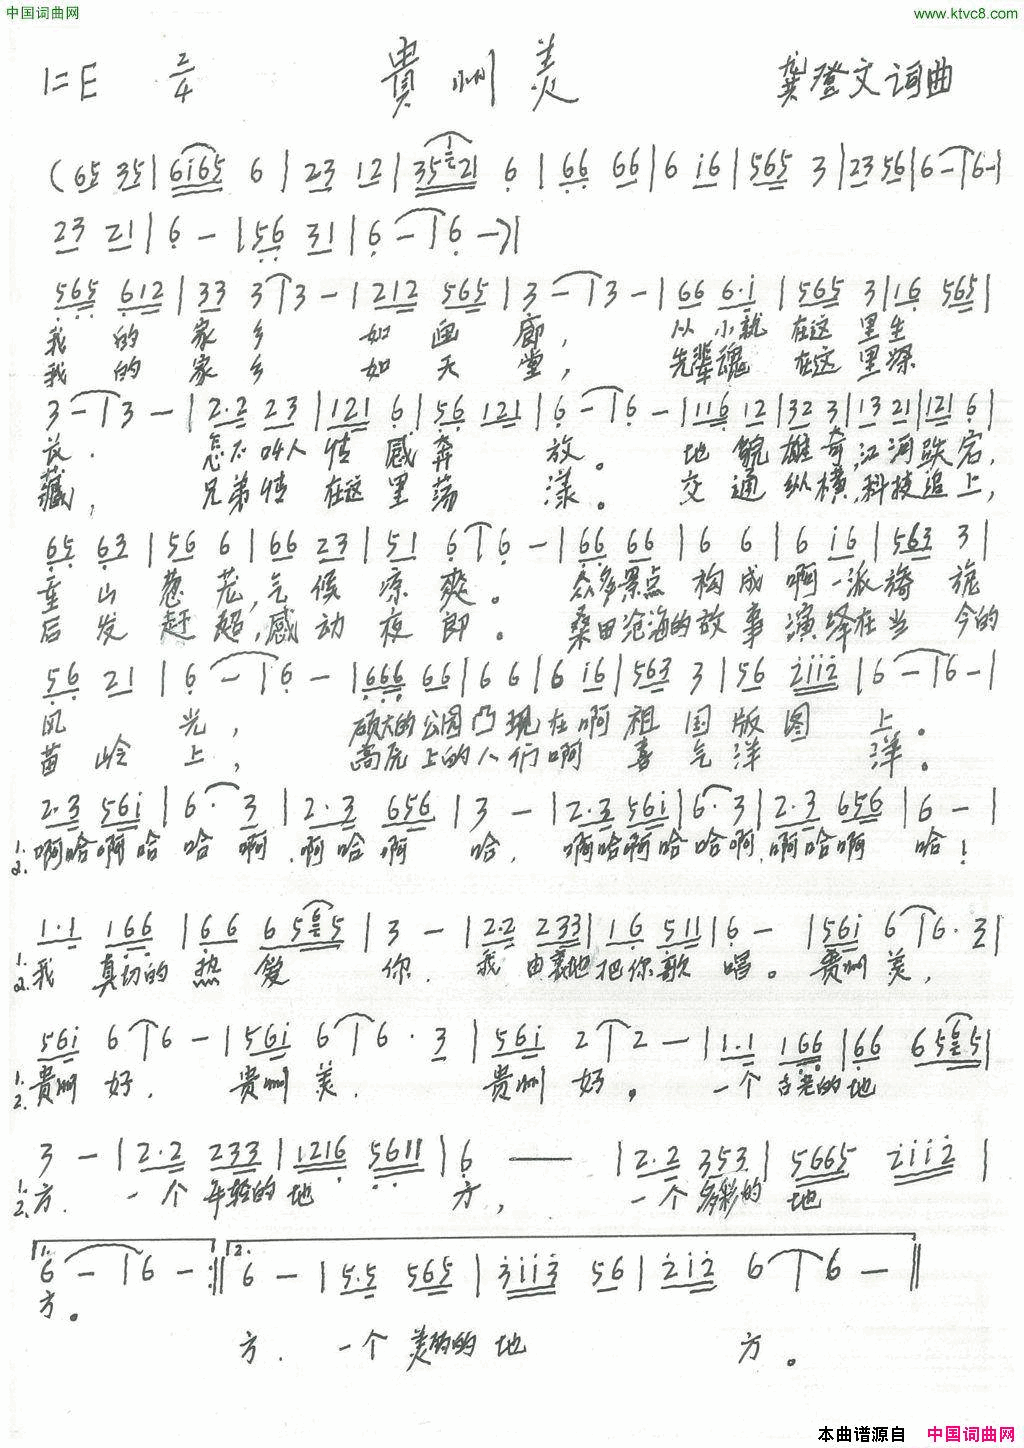 中国词曲网
www.ktvc8.com
1=E 2/4 貴州美 龚登文词曲
(65 35|6i65 6|23 12|35 21 6|66 66|6 i6|565 3|23 56|6-|6-|
23 21|6 -|56 31|6 -|6 -)|
565 612|33 3|3 -|212 565|3 -|3 -|66 6·i|565 3|16 565|
我的家乡 如画廊, 从小就在这里生
我的家乡 如天堂, 先辈魂在这里深
3 -|3 -|2·2 23|121 6|56 121|6 -|6 -|116 12|32 3|13 21|121 6|
长. 怎不叫人情感奔放。 地貌雄奇,江河跌宕,
藏, 兄弟情在这里荡漾。 交通纵横,科技追上,
65 63|56 6|66 23|51 6|6 -|66 66|6 6|6 i6|563 3|
重山葱茏,气候凉爽。 众多景点构成啊一派旖旎
后发赶超,感动夜郎。 桑田沧海的故事演绎在当今的
56 21|6 -|6 -|666 66|6 6|6 i6|563 3|56 2ii2|6 -|6 -|
风光, 硕大的公园凸现在啊祖国版图上。
苗岭上, 高原上的人们啊喜气洋洋。
2·3 56i|6· 3|2·3 656|3 -|2·3 56i|6·3|2·3 656|6 -|
1. 2. 啊哈啊哈哈啊.啊哈啊哈. 啊哈啊哈哈啊.啊哈啊哈!
1·1 166|66 65 5|3 -|2·2 233|16 511|6 -|56i 6|6·3|
1. 2. 我真切的热爱你. 我由衷地把你歌唱。贵州美,
56i 6|6 -|56i 6|6·3|56i 2|2 -|1·1 166|66 65 5|
1. 2. 贵州好. 贵州美. 贵州好。一个古老的地
3 -|2·2 233|1216 5611|6 —|2·2 353|5665 2ii2|
1. 2. 方. 一个年轻的地方, 一个多彩的地
1. 6 -|6 -:‖2. 6 -|5·5 565|3ii3 56|2i2 6|6 -‖
方。
方. 一个美丽的地方。
本曲谱源自 中国词曲网